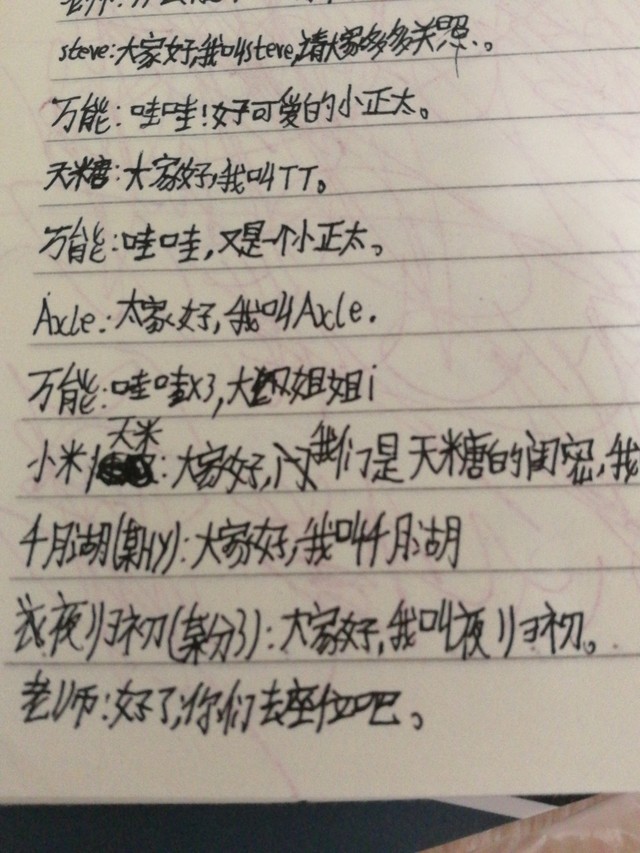 steve:大家好,我叫steve,请大家多多关照。
万能:哇哇!好可爱的小正太。
天米糖:大家好,我叫TT。
万能:哇哇,又是一个小正太。
Axle:大家好,我叫Axle.
万能:哇哇X3,大姐姐i
天米
小米/:大家好,我们是天米糖的闺密,我
千月湖(某HY):大家好,我叫千月湖
夜归初(某分3):大家好,我叫夜归初。
老师:好了,你们去座位吧。